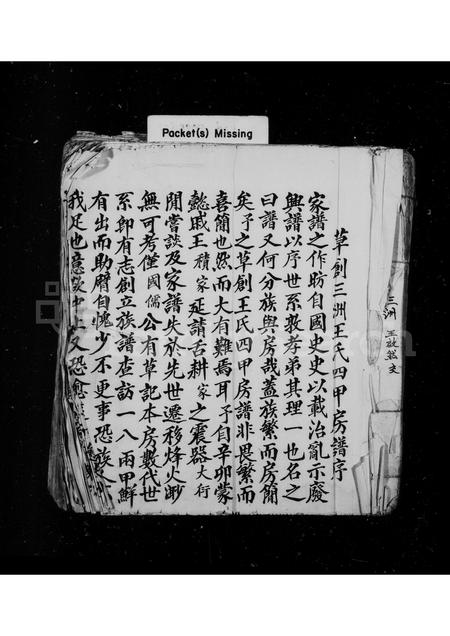 Packet(s) Missing
三洲 王
草創三洲王氏四甲房譜序
家譜之作昉自國史史以載治亂示廢
興譜以序世系敦孝弟其理一也名之
曰譜又何分族與房哉蓋族繁而房簡
矣予之草創王氏四甲房譜非畏繁而
喜簡也然而大有難焉耳予自辛卯蒙
懿戚王積家延請舌耕家之震器大行
閒嘗談及家譜失於先世遷移烽火渺
無可考僅國儒公有草記本房數代世
系卽有志創立族譜查訪一八兩甲鮮
有出而助臂自愧少不更事恐族
我足也意
又恐愈